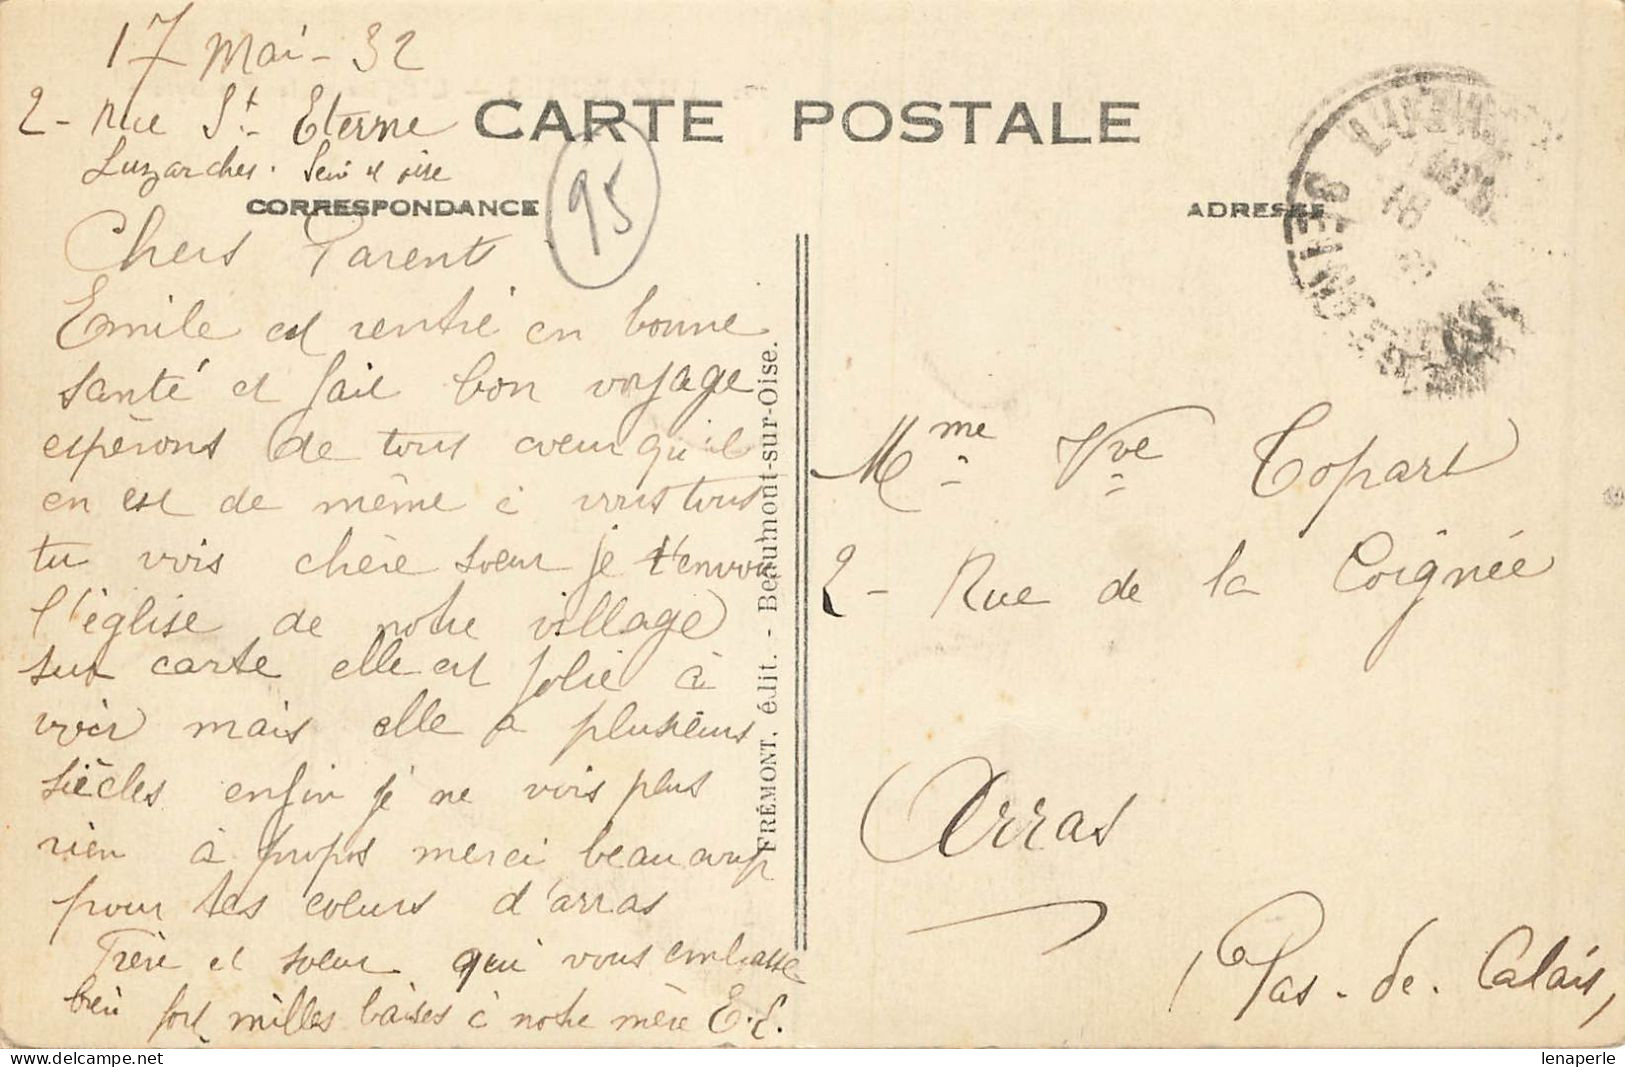 17 Mai - 32
2 - Rue St Etienne
Luzarches. Sein et oise
CARTE POSTALE
CORRESPONDANCE
95
ADRESSE
Chers Parents
Emile est rentré en bonne
santé et fait bon voyage
espérons de tout coeur qu'il
en est de même à vous tous
tu vois chère soeur je t'envoi
l'église de notre village
sur carte elle est jolie à
voir mais elle a plusieurs
siècles enfin je ne vois plus
rien à propos merci beaucoup
pour tes coeurs d'arras
Frère et soeur qui vous embrasse
bien fort milles baises à notre mère E.E.
FRÉMONT, édit. - Beaumont-sur-Oise.
Mme Vve Topart
2 - Rue de la Coignée
Arras
Pas-de-Calais,
SEINE
18
lenaperle